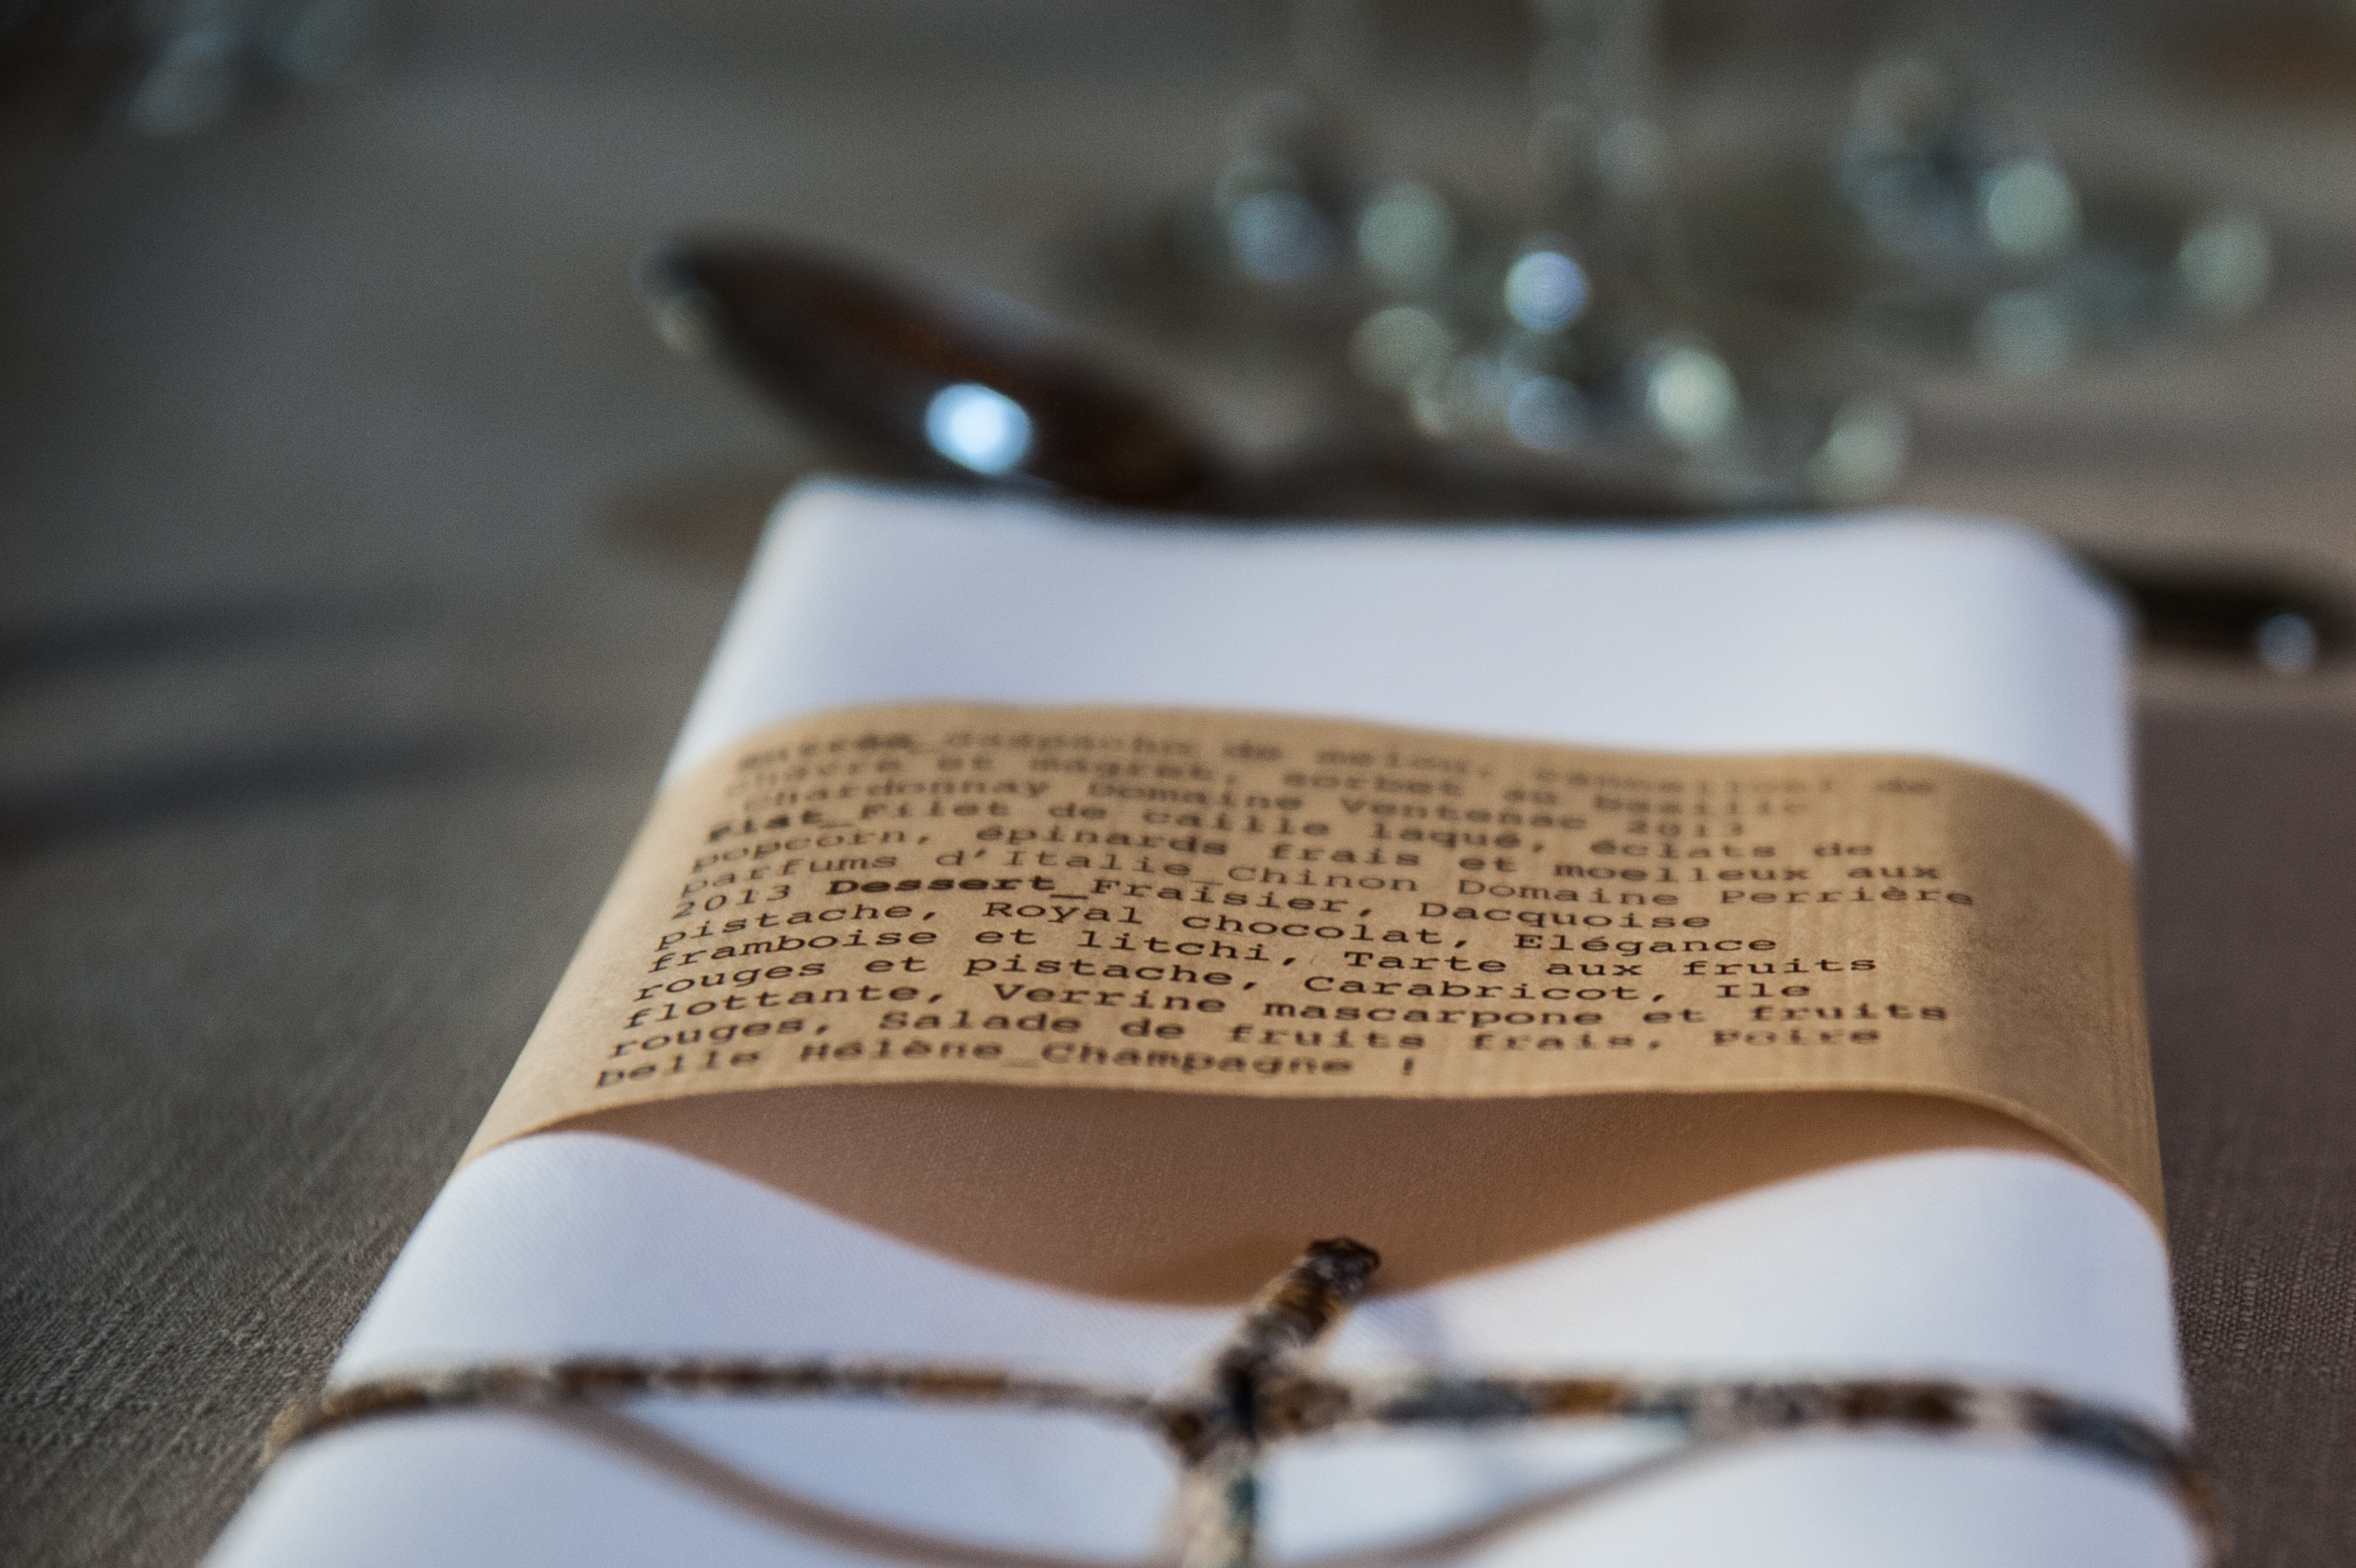 Entrée_Gaspacho de melon, cannelloni de
chèvre et magret, sorbet au basilic
Chardonnay Domaine Ventenac 2013
Plat_Filet de caille laqué, éclats de
popcorn, épinards frais et moelleux aux
parfums d'Italie_Chinon Domaine Perrière
2013 Dessert_Fraisier, Dacquoise
pistache, Royal chocolat, Elégance
framboise et litchi, Tarte aux fruits
rouges et pistache, Carabricot, Ile
flottante, Verrine mascarpone et fruits
rouges, Salade de fruits frais, Poire
belle Hélène_Champagne !